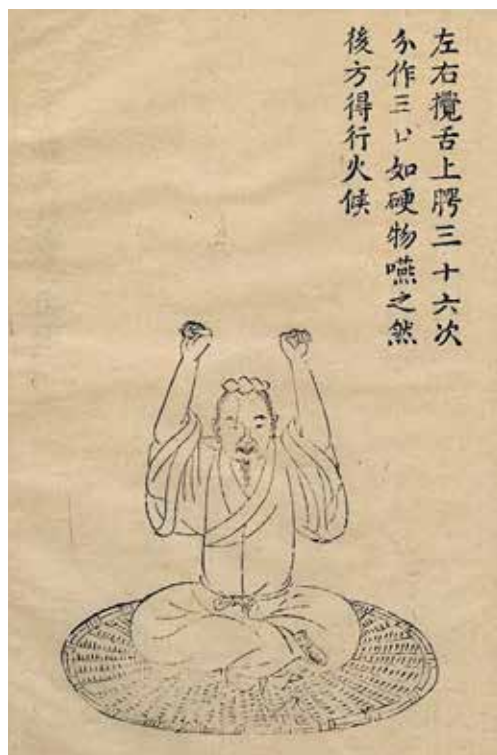 左右攪舌上腭三十六次
分作三口如硬物嚥之然
後方得行火候